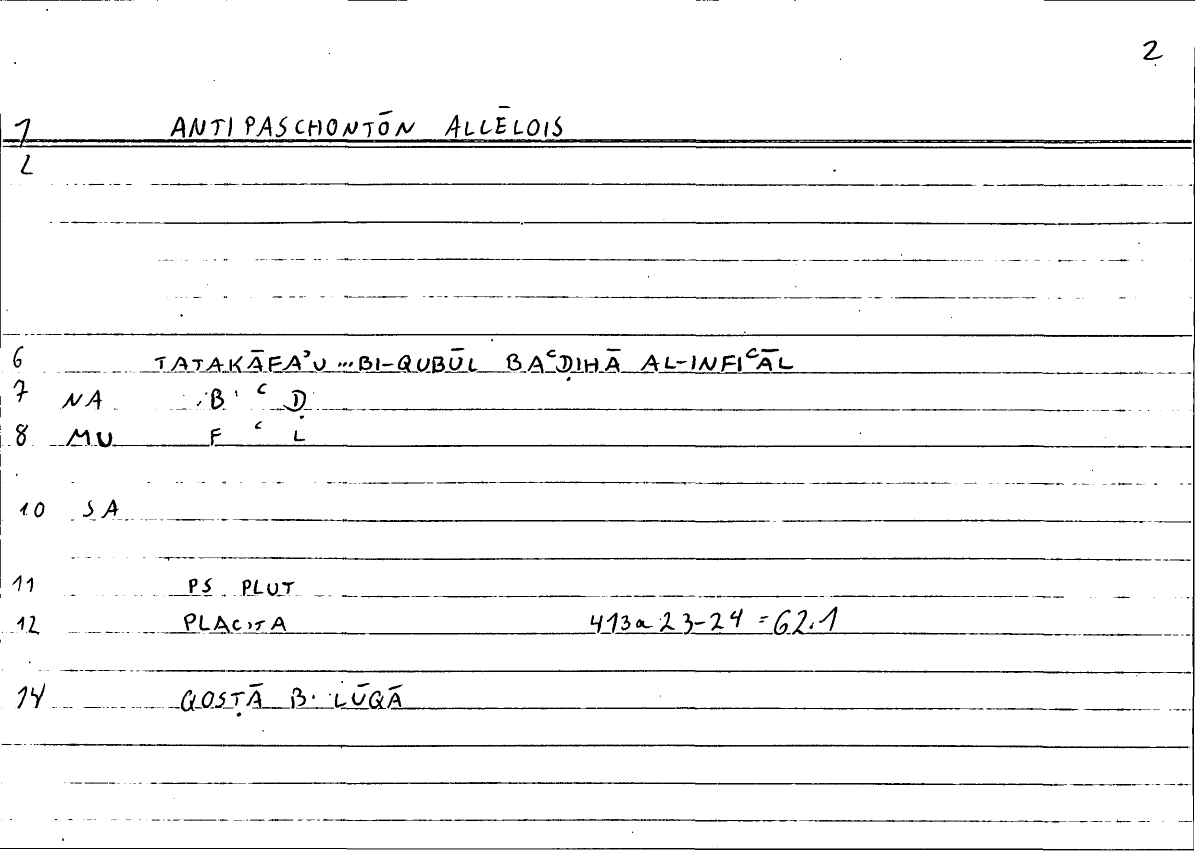 2
1 ANTIPASCHONTŌN ALLĒLOIS
2
6 TATAKĀFAʾU ... BI-QUBŪL BAʿḌIHĀ AL-INFIʿĀL
7 NA B ʿ Ḍ
8 MU F ʿ L
10 SA
11 PS PLUT
12 PLACITA 413a23-24 = 62.1
14 QOSṬĀ B. LŪQĀ